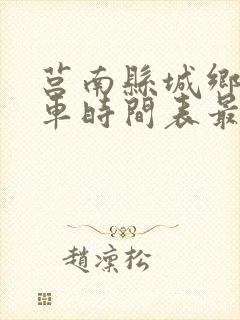 莒南縣城鄉
車時間表最
趙凜松